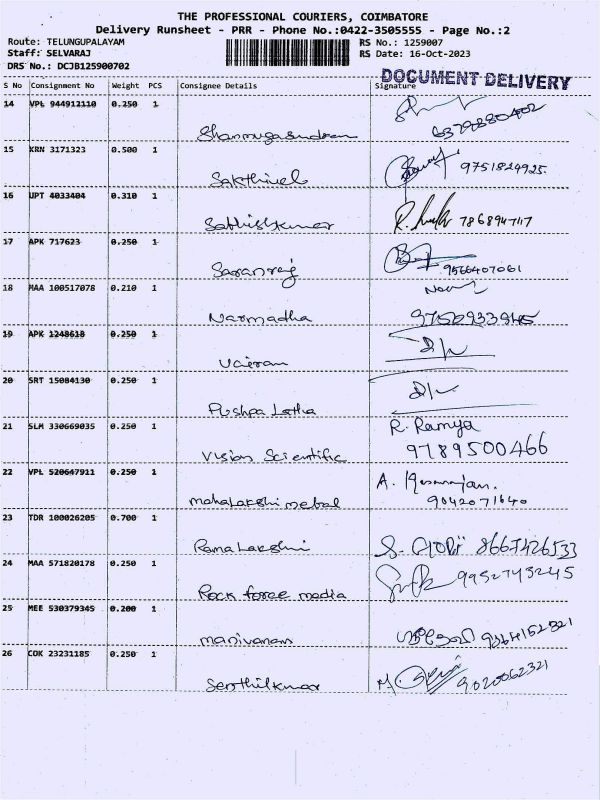 THE PROFESSIONAL COURIERS, COIMBATORE
Delivery Runsheet - PRR - Phone No.:0422-3505555 - Page No.:2
Route: TELUNGUPALAYAM RS No.: 1259007
Staff: SELVARAJ RS Date: 16-Oct-2023
DRS No.: DCJB125900702
DOCUMENT DELIVERY
S No Consignment No Weight PCS Consignee Details Signature
14 VPL 944912110 0.250 1
Shanmugasundram 6379880402
15 KRN 3171323 0.500 1
Sakthivel 9751824925.
16 UPT 4033404 0.310 1
Sathishkumar 7868947117
17 APK 717623 0.250 1
Saranraj 9566407061
18 MAA 100517078 0.210 1
Narmadha 9750933945
19 APK 1248618 0.250 1
Vairam D/L
20 SRT 15084130 0.250 1
Pushpa Latha D/L
21 SLM 330669035 0.250 1 R. Ramya
Vision Scientific 9789500466
22 VPL 520647911 0.250 1 A.
Mahalakshmi metal 9042071640
23 TDR 100026205 0.700 1
Rama Lakshmi S. 8667426533
24 MAA 571820178 0.250 1
Rock force media 9952745245
25 MEE 530379345 0.200 1
manivanam 9364152321
26 COK 23231185 0.250 1
Senthilkumar M. 9020062321